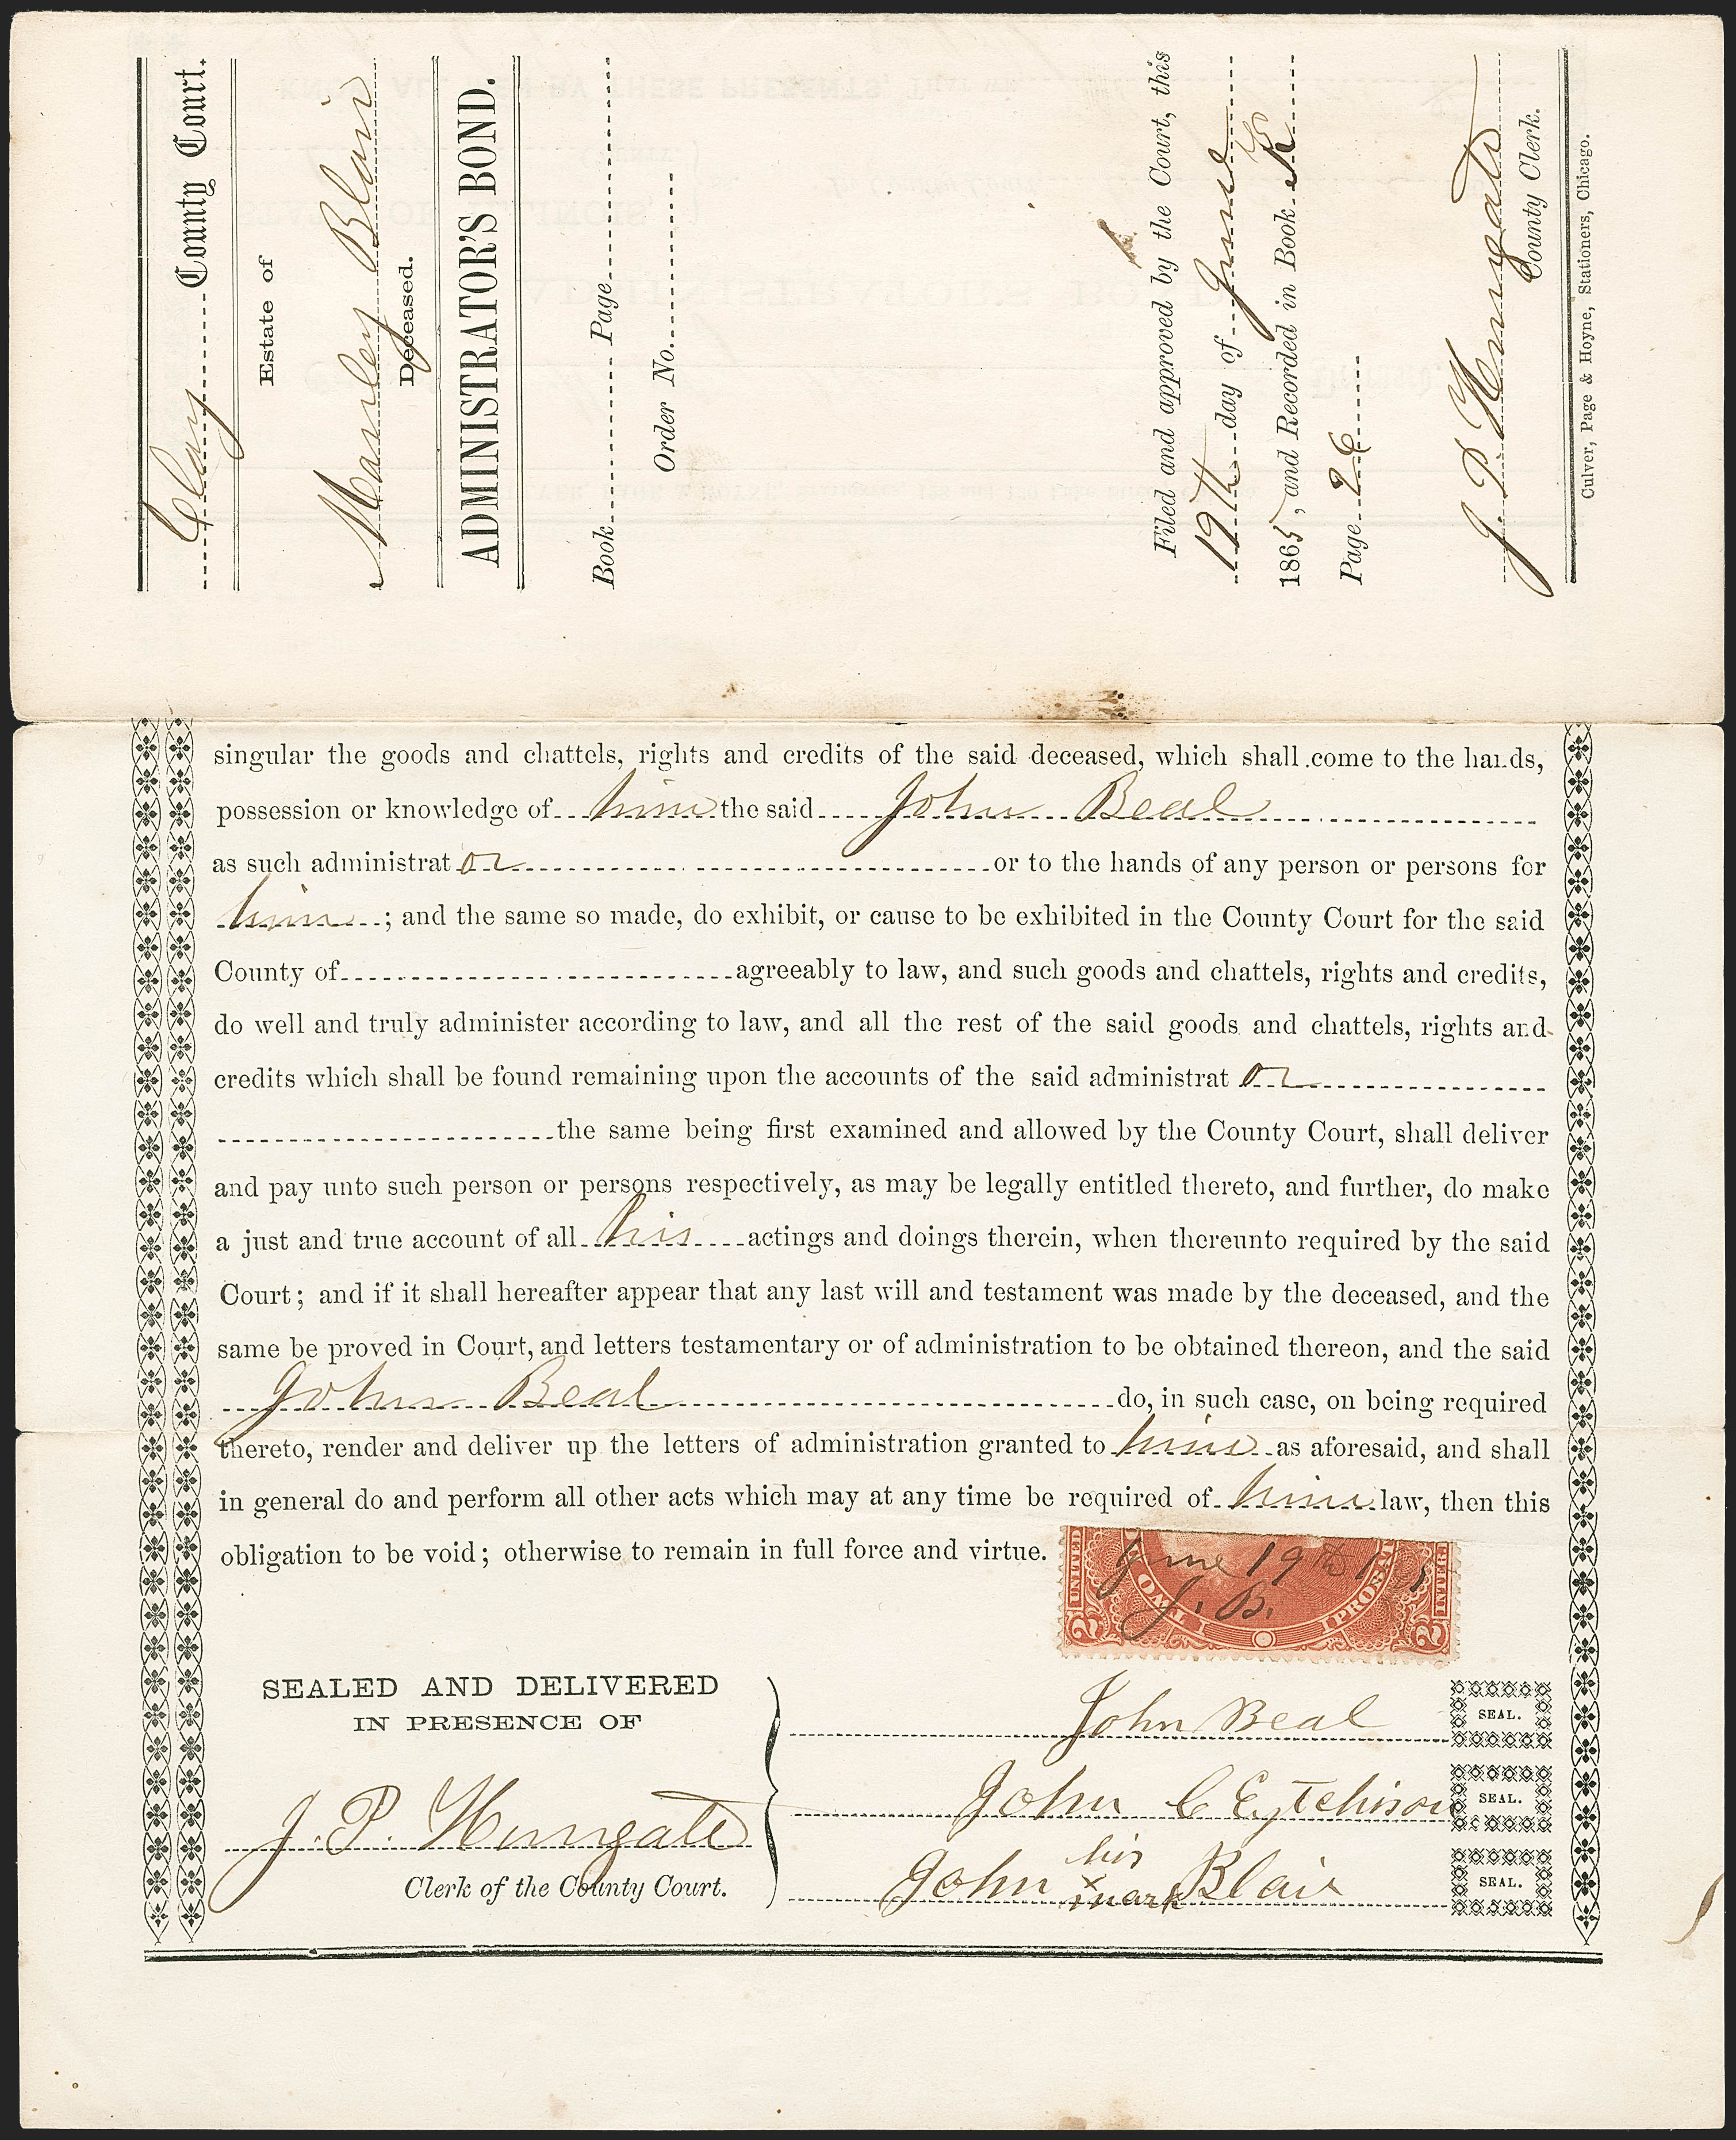 Clay County Court.
Estate of
Manley Blair
Deceased.
ADMINISTRATOR'S BOND.
Book Page
Order No.
Filed and approved by the Court, this
19th day of June
1865, and Recorded in Book K
Page 26
J. P. Hungate
County Clerk.
Culver, Page & Hoyne, Stationers, Chicago.
singular the goods and chattels, rights and credits of the said deceased, which shall come to the hands,
possession or knowledge of him the said John Beal
as such administrat or or to the hands of any person or persons for
him ; and the same so made, do exhibit, or cause to be exhibited in the County Court for the said
County of agreeably to law, and such goods and chattels, rights and credits,
do well and truly administer according to law, and all the rest of the said goods and chattels, rights and
credits which shall be found remaining upon the accounts of the said administrat or
the same being first examined and allowed by the County Court, shall deliver
and pay unto such person or persons respectively, as may be legally entitled thereto, and further, do make
a just and true account of all his actings and doings therein, when thereunto required by the said
Court; and if it shall hereafter appear that any last will and testament was made by the deceased, and the
same be proved in Court, and letters testamentary or of administration to be obtained thereon, and the said
John Beal do, in such case, on being required
thereto, render and deliver up the letters of administration granted to him as aforesaid, and shall
in general do and perform all other acts which may at any time be required of him law, then this
obligation to be void; otherwise to remain in full force and virtue.
UNITED INTER
June 19th
J. B.
TWO PROS
2 2
SEALED AND DELIVERED
IN PRESENCE OF
J. P. Hungate
Clerk of the County Court.
John Beal SEAL.
John C Eytchison SEAL.
his
John x Blair SEAL.
mark